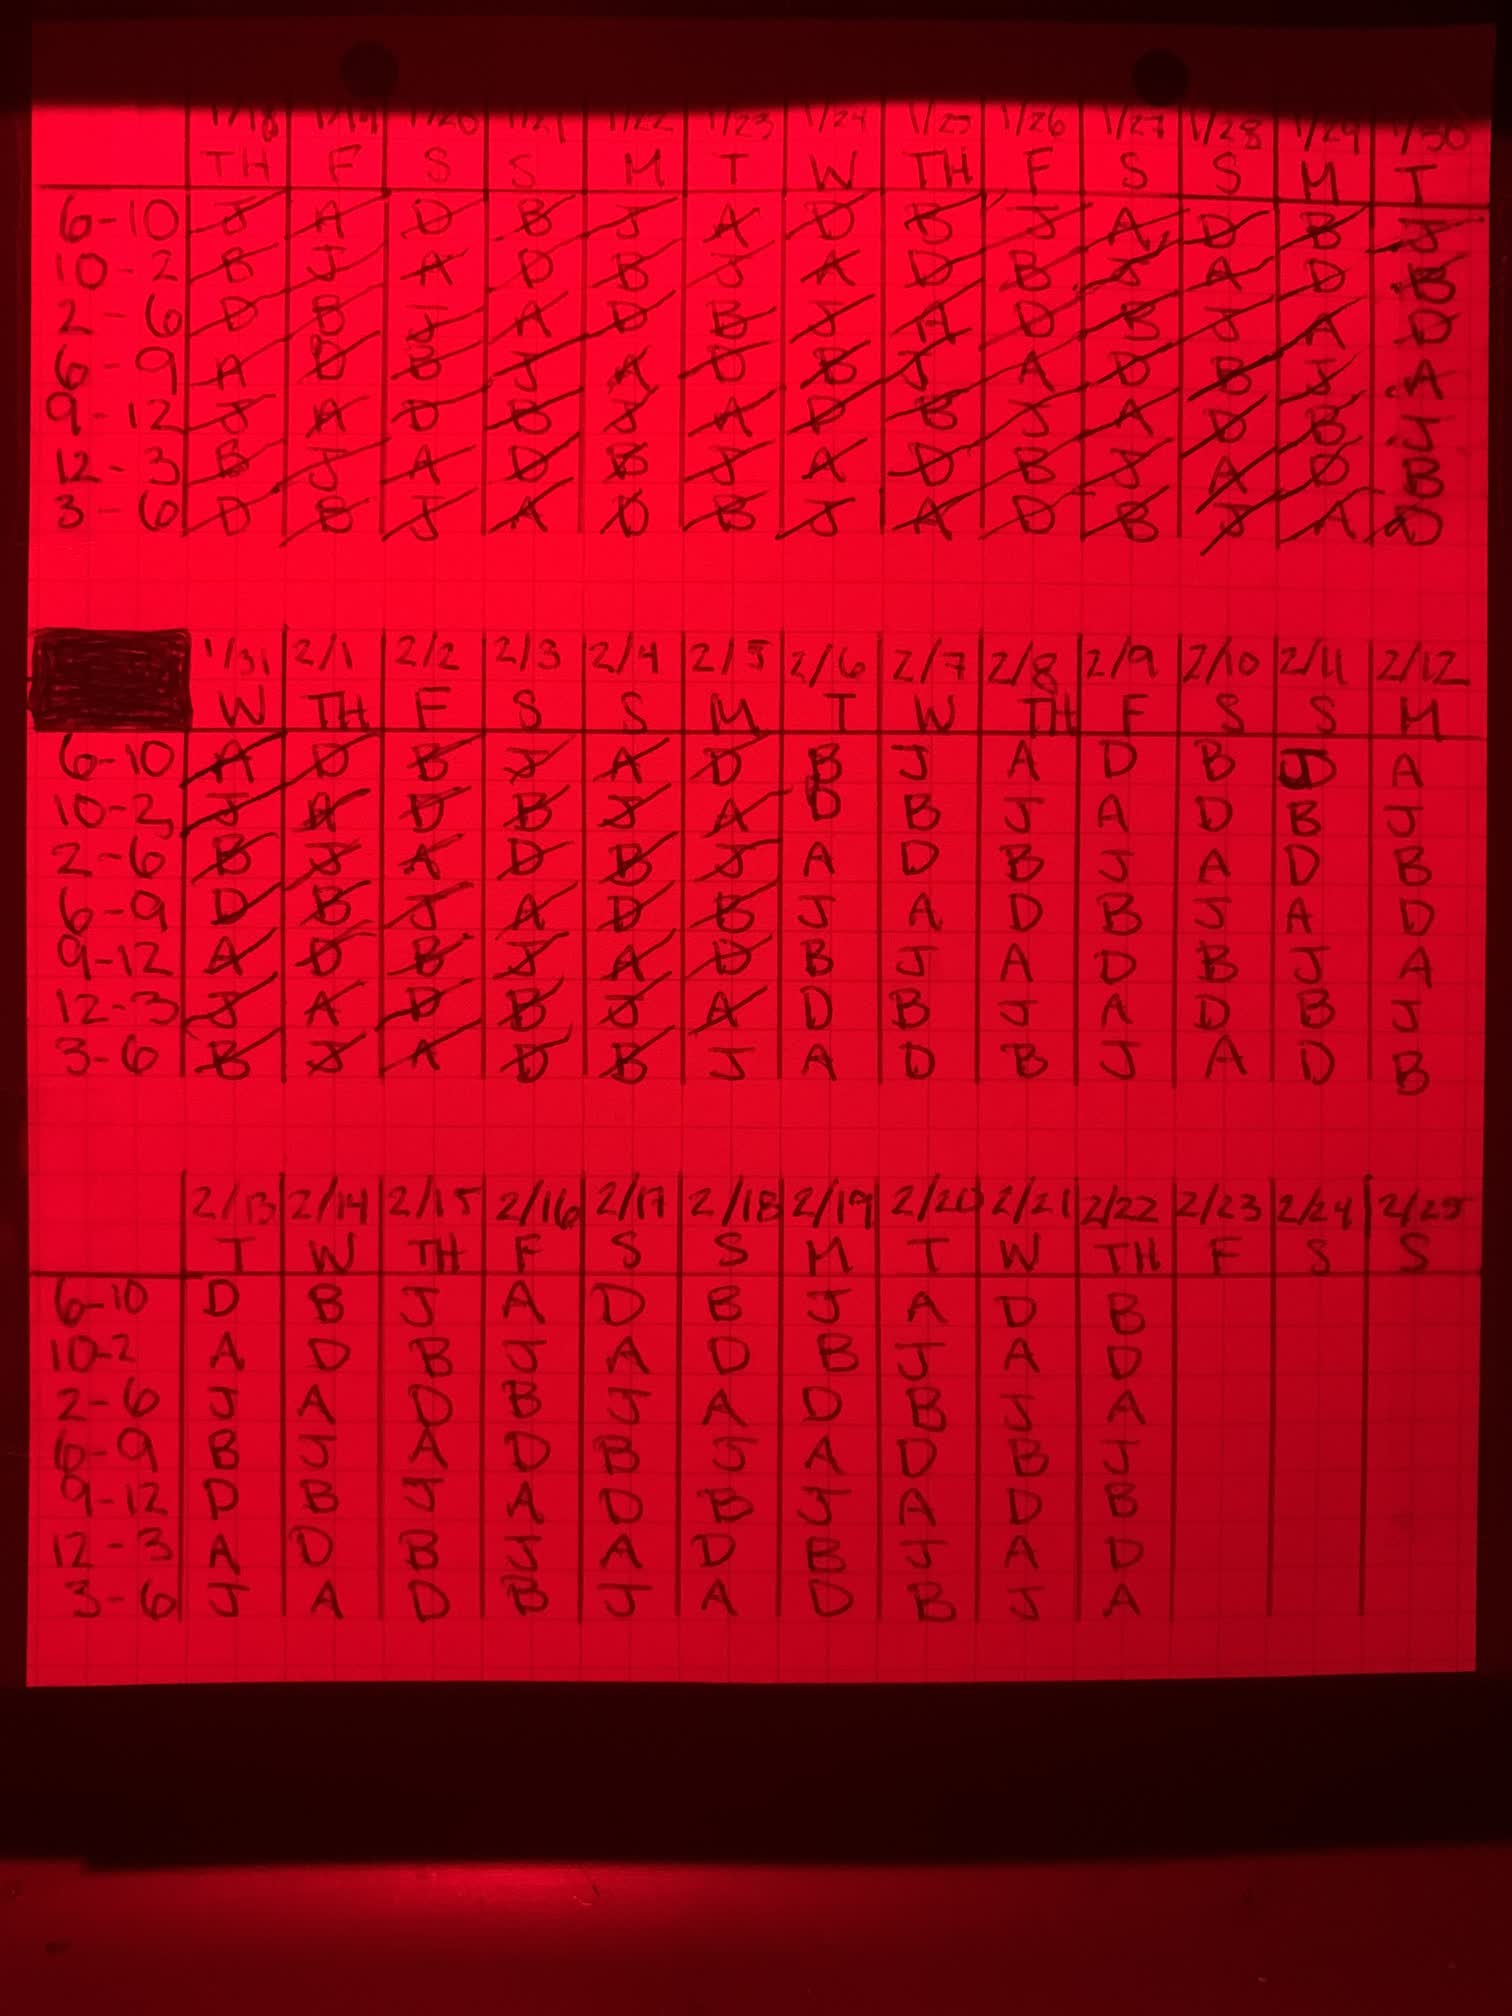 1/18 1/19 1/20 1/21 1/22 1/23 1/24 1/25 1/26 1/27 1/28 1/29 1/30
TH F S S M T W TH F S S M T
6-10 J A D B J A D B J A D B J
10-2 B J A D B J A D B J A D B
2-6 D B J A D B J A D B J A D
6-9 A D B J A D B J A D B J A
9-12 J A D B J A D B J A D B J
12-3 B J A D B J A D B J A D B
3-6 D B J A D B J A D B J A D
1/31 2/1 2/2 2/3 2/4 2/5 2/6 2/7 2/8 2/9 2/10 2/11 2/12
W TH F S S M T W TH F S S M
6-10 A D B J A D B J A D B J A
10-2 J A D B J A D B J A D B J
2-6 B J A D B J A D B J A D B
6-9 D B J A D B J A D B J A D
9-12 A D B J A D B J A D B J A
12-3 J A D B J A D B J A D B J
3-6 B J A D B J A D B J A D B
2/13 2/14 2/15 2/16 2/17 2/18 2/19 2/20 2/21 2/22 2/23 2/24 2/25
T W TH F S S M T W TH F S S
6-10 D B J A D B J A D B
10-2 A D B J A D B J A D
2-6 J A D B J A D B J A
6-9 B J A D B J A D B J
9-12 D B J A D B J A D B
12-3 A D B J A D B J A D
3-6 J A D B J A D B J A